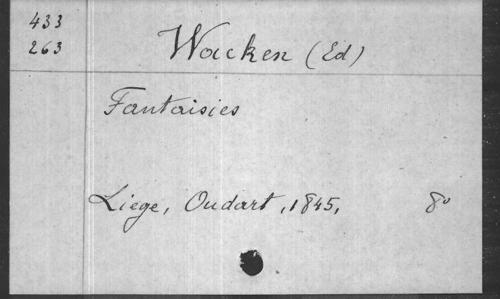 433
263
Wacken (Ed)
Fantaisies
Liege, Oudart, 1845,
8º